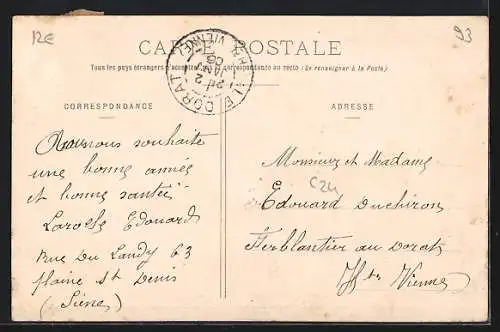 12E
93
CARTE POSTALE
Tous les pays étrangers n'acceptent pas la correspondance au recto (Se renseigner à la Poste)
CORRESPONDANCE
ADRESSE
nous souhaite
une bonne année
et bonne santée
Laroche Edouard
Rue Du Landy 63
plaine St Denis
(Siene)
Monsieur et Madame
C24
Edouard Duchiron
Ferblantier au Dorat
Hte Vienne